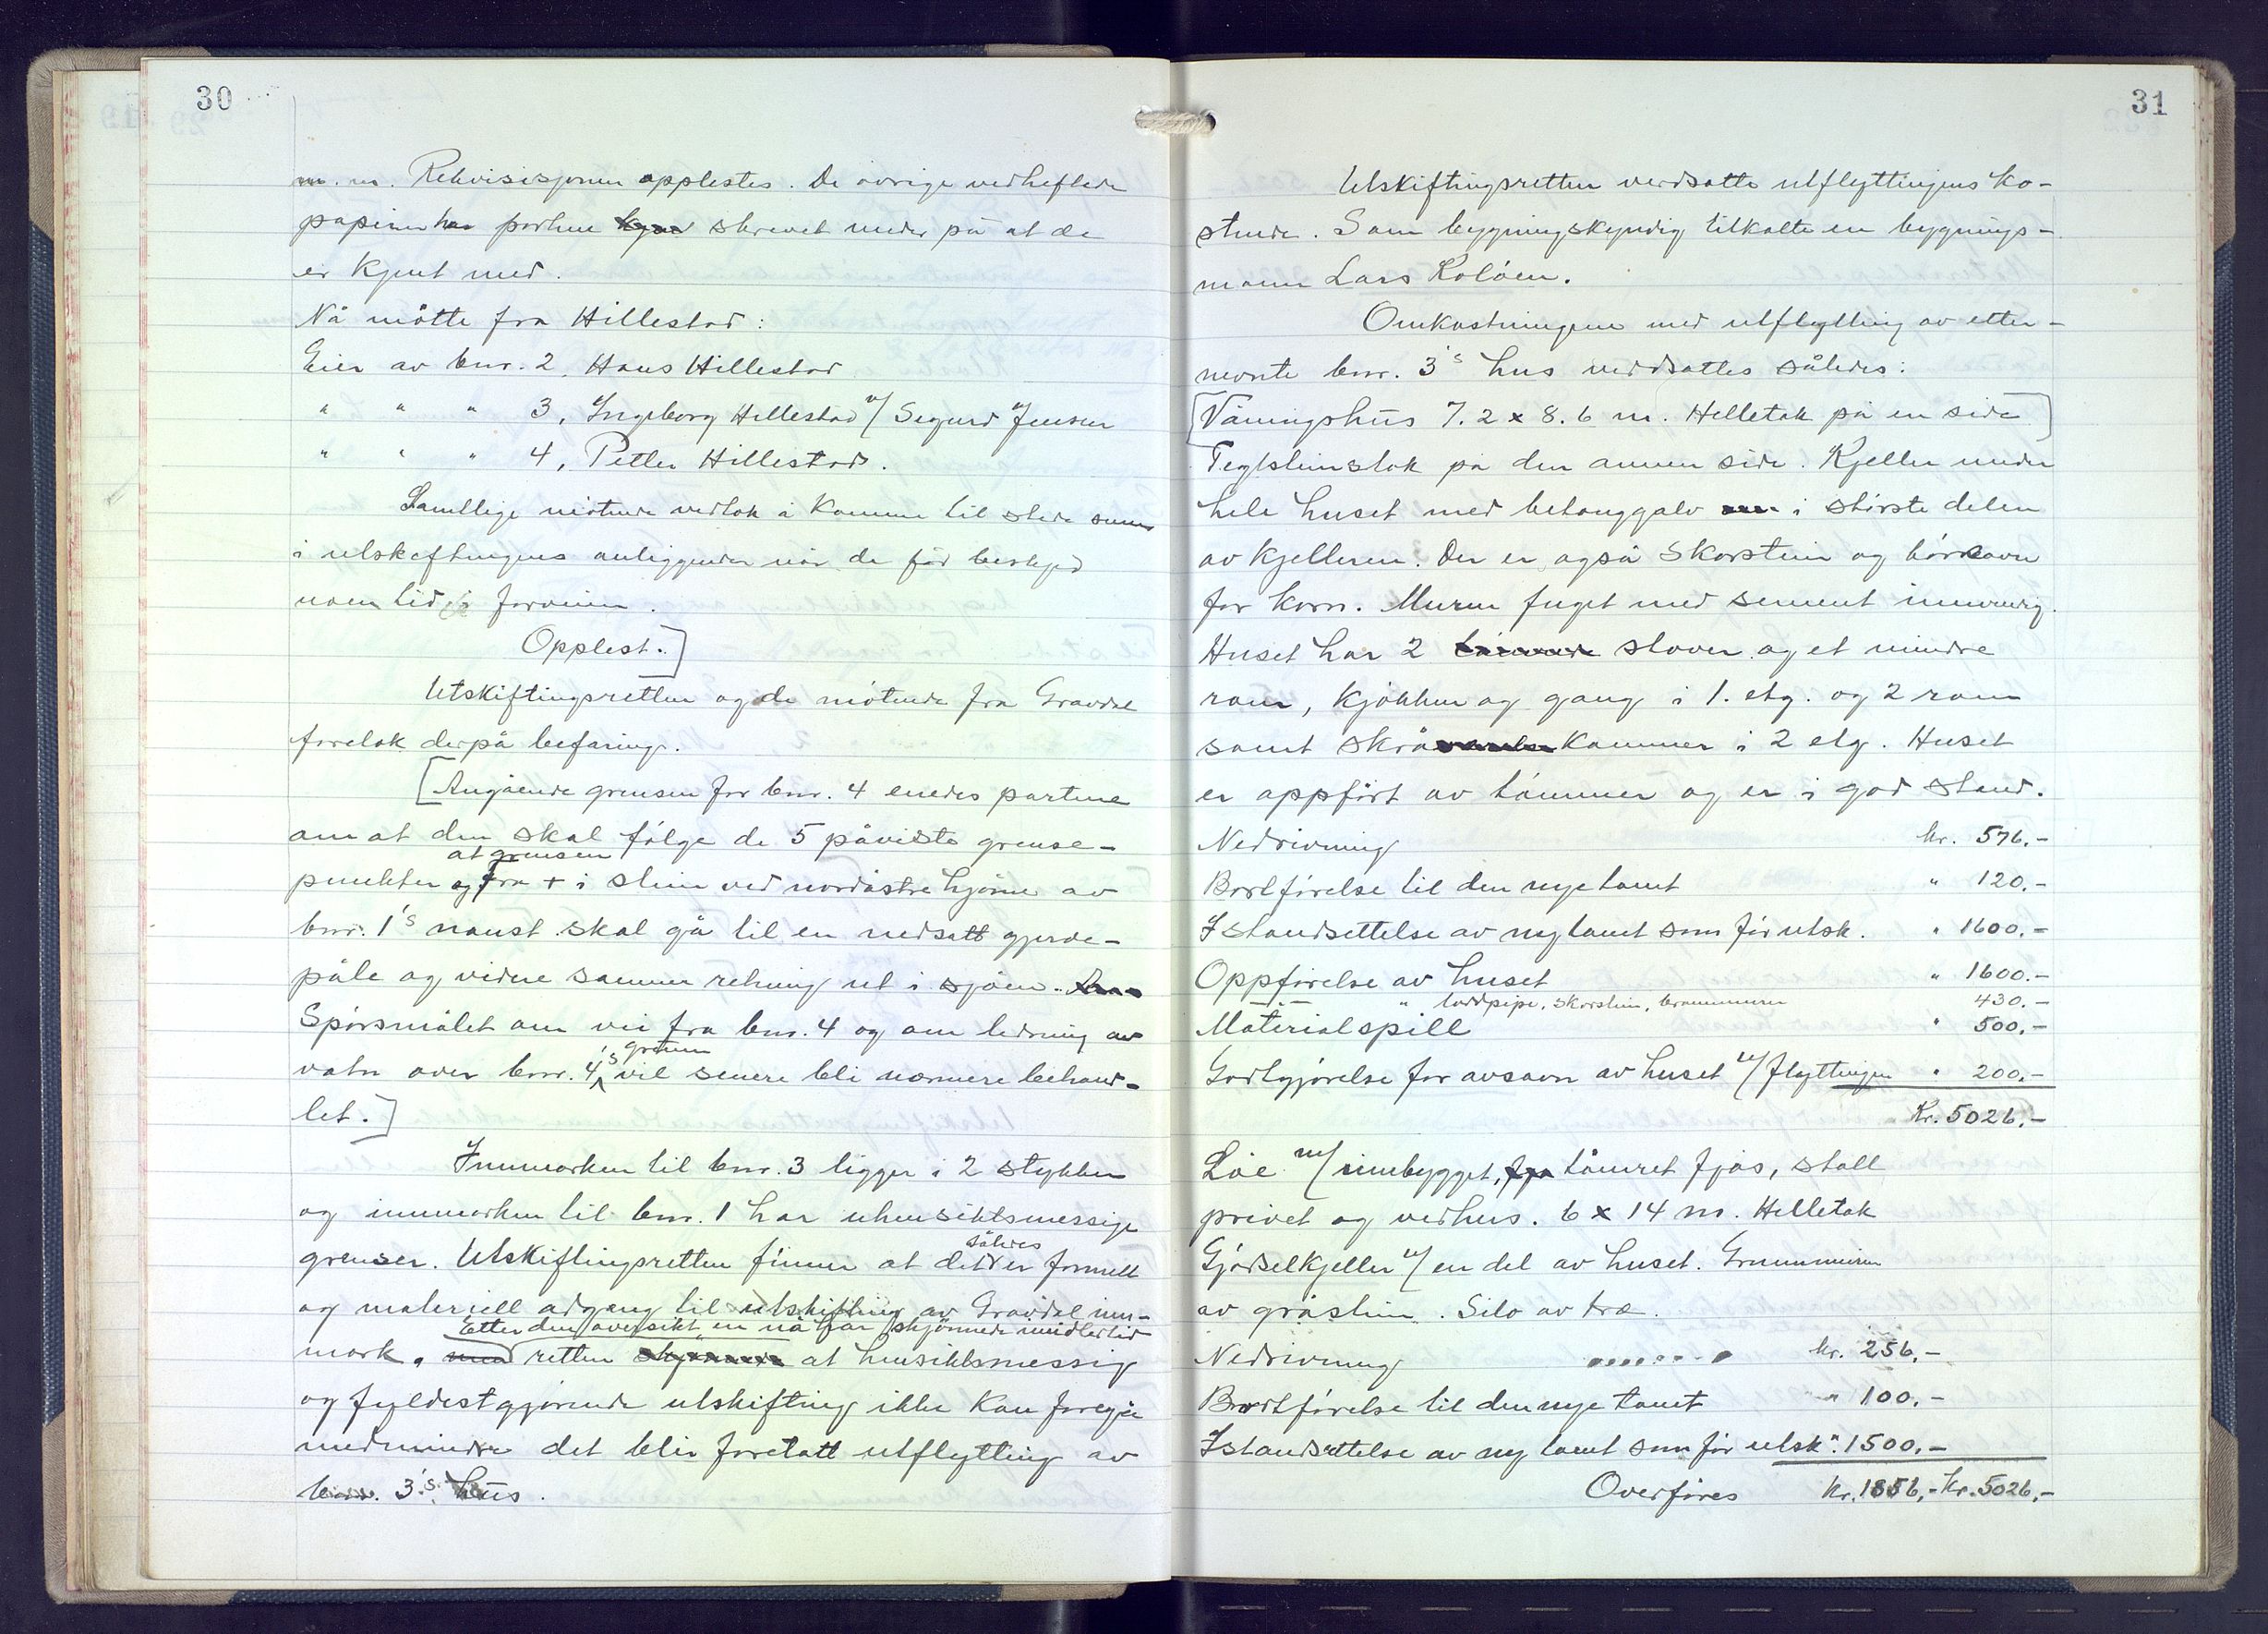 30
m.m. Rekvisisjonen opplestes. De øvrige vedheftede
papirer har partene skrevet under på at de
er kjent med.
Nå møtte fra Hillestad:
Eier av bnr. 2, Hans Hillestad
" " " 3, Ingeborg Hillestad v/ Sigurd Jensen
" " " 4, Petter Hillestad.
Samtlige møtende vedtok å komme til stede senere
i utskiftingens anliggender når de får beskjed
noen tid i forveien.
Opplest.]
Utskiftingsretten og de møtende fra Gravdal
foretok derpå befaring.
[Angående grensen for bnr. 4 enedes partene
om at den skal følge de 5 påviste grense-
at grensen
punkter og fra + i stein ved nordøstre hjørne av
bnr. 1's naust skal gå til en nedsatt gjerde-
påle og videre samme retning ut i sjøen.
Spørsmålet om vei fra bnr. 4 og om ledning av
's grunn
vatn over bnr. 4 vil senere bli nærmere behand-
let.]
Innmarken til bnr. 3 ligger i 2 stykker
og innmarken til bnr. 1 har uhensiktsmessige
således
grenser. Utskiftingsretten finner at det er formell
og materiell adgang til utskifting av Gravdal inn-
Etter den oversikt en nå har skjønnede imidlertid
mark. retten at hensiktsmessig
og fyldestgjørende utskifting ikke kan foregå
medmindre det blir foretatt utflytting av
bnr. 3's hus.
31
Utskiftingsretten verdsatte utflyttingens ko-
stende. Som bygningskyndig tilkalte en bygnings-
mann Lars Koløen.
Omkostningene med utflytting av etter-
nevnte bnr. 3's hus verdsattes således:
[Våningshus 7.2 x 8.6 m. Helletak på en side]
Teglsteinstak på den annen side. Kjeller under
hele huset med betonggolv i største delen
av kjelleren. Der er også skorstein og tørreovn
for korn. Muren fuget med sement innvendig.
Huset har 2 stover og et mindre
rom, kjøkken og gang i 1. etg. og 2 rom
samt skråkammer i 2 etg. Huset
er oppført av tømmer og er i god stand.
Nedrivning kr. 576.-
Bortførelse til den nye tomt " 120.-
Istandsettelse av ny tomt som før utsk. " 1600.-
Oppførelse av huset " 1600.-
—"— " luftpipe, skorstein, brannmurer 430.-
Materialspill " 500.-
Godtgjørelse for avsavn av huset u/ flyttingen " 200.-
Kr. 5026.-
Løe m/ innbygget, tømret fjøs, stall
privet og vedhus. 6 x 14 m. Helletak
Gjødselkjeller u/ en del av huset. Grunnmuren
av gråstein. Silo av tre.
Nedrivning ........ kr. 256.-
Bortførelse til den nye tomt " 100.-
Istandsettelse av ny tomt som før utsk. " 1500.-
Overføres Kr. 1856,- Kr. 5026.-